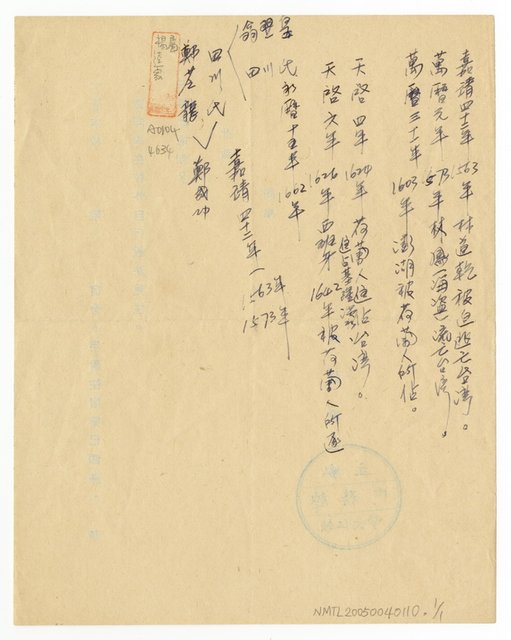 嘉靖四十二年 1563年 林道乾被追逃亡台灣。
萬曆元年 1573年 林鳳(海盜)流亡台灣。
萬曆三十一年 1603年 澎湖被荷蘭人所佔。
天啓四年 1624年 荷蘭人侵佔台灣。
侵占基隆淡水
天啓六年 1626年 西班牙 1642年被荷蘭人所逐
永曆十五年 1662年
嘉靖四十二年—1563年
1573年
翁翌皇
田川氏
田川氏
鄭成功
鄭芝龍
A0104
4634
NMTL20050040110. 1/1